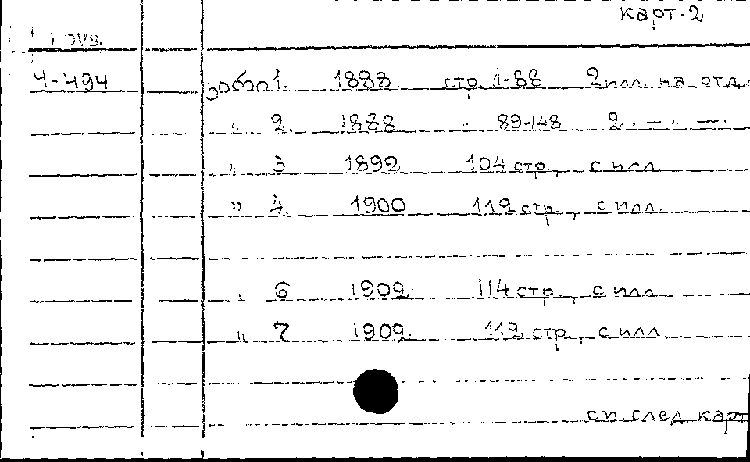 карт-2
4-494 1. 1888 стр. 1-88 2 илл. на отд.
" 2. 1888 " 89-148 2. — " —.
" 3 1892 104 стр., с илл.
" 4. 1900 112 стр., с илл.
" 6 1902. 114 стр., с илл.
" 7 1902. 112 стр., с илл.
см след карт